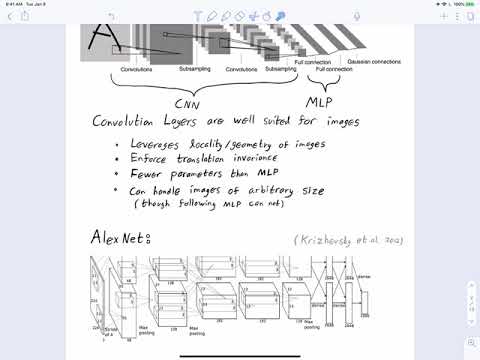 9:41 AM Tue Jan 9
100%
Convolutions
Subsampling
Convolutions
Subsampling
Full connection
Full connection
Gaussian connections
CNN
MLP
Convolution Layers are well suited for images
• Leverages locality/geometry of images
• Enforce translation invariance
• Fewer parameters than MLP
• Can handle images of arbitrary size
(though following MLP can not)
AlexNet:
(Krizhevsky et al. 2012)
Stride of 4
Max pooling
Max pooling
Max pooling
dense
dense
dense